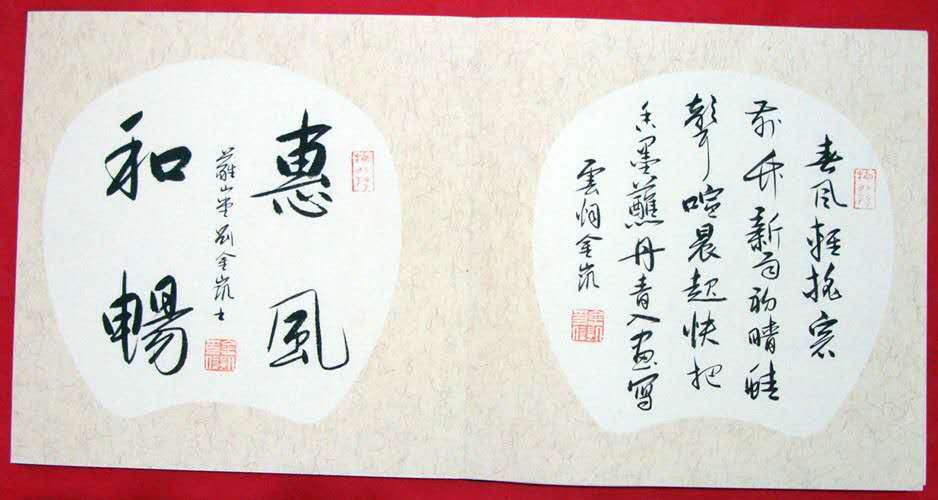 春風輕搖窗
前竹新雨初晴蛙
聲喧晨起快把
香墨蘸丹青入畫寫
雲金凱
惠風
和暢
山堂劉金凱